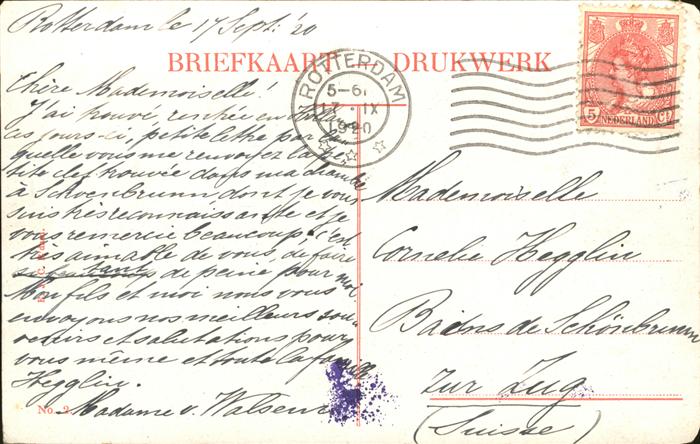 Rotterdam le 17 Sept. '20
BRIEFKAART DRUKWERK
ROTTERDAM
5-6
17 IX
1920
5 NEDERLAND Ct
Chère Mademoiselle!
J'ai trouvé, rentrée en
ces jours-ci, petite lettre par la
quelle vous me renvoyez la pe
tite clef trouvée dans ma chambre
à Schoenbrunn, dont je vous
suis très reconnaissante et je
vous remercie beaucoup. C'est
très aimable de vous, de faire
tant de peine pour moi
Mon fils et moi nous vous
envoyons nos meilleurs sou
venirs et salutations pour
vous même et toute la famille
Hegglin.
No. 2 Madame v. Walsem
Mademoiselle
Cornelie Hegglin
Bains de Schönbrunn
zur Zug
(Suisse)